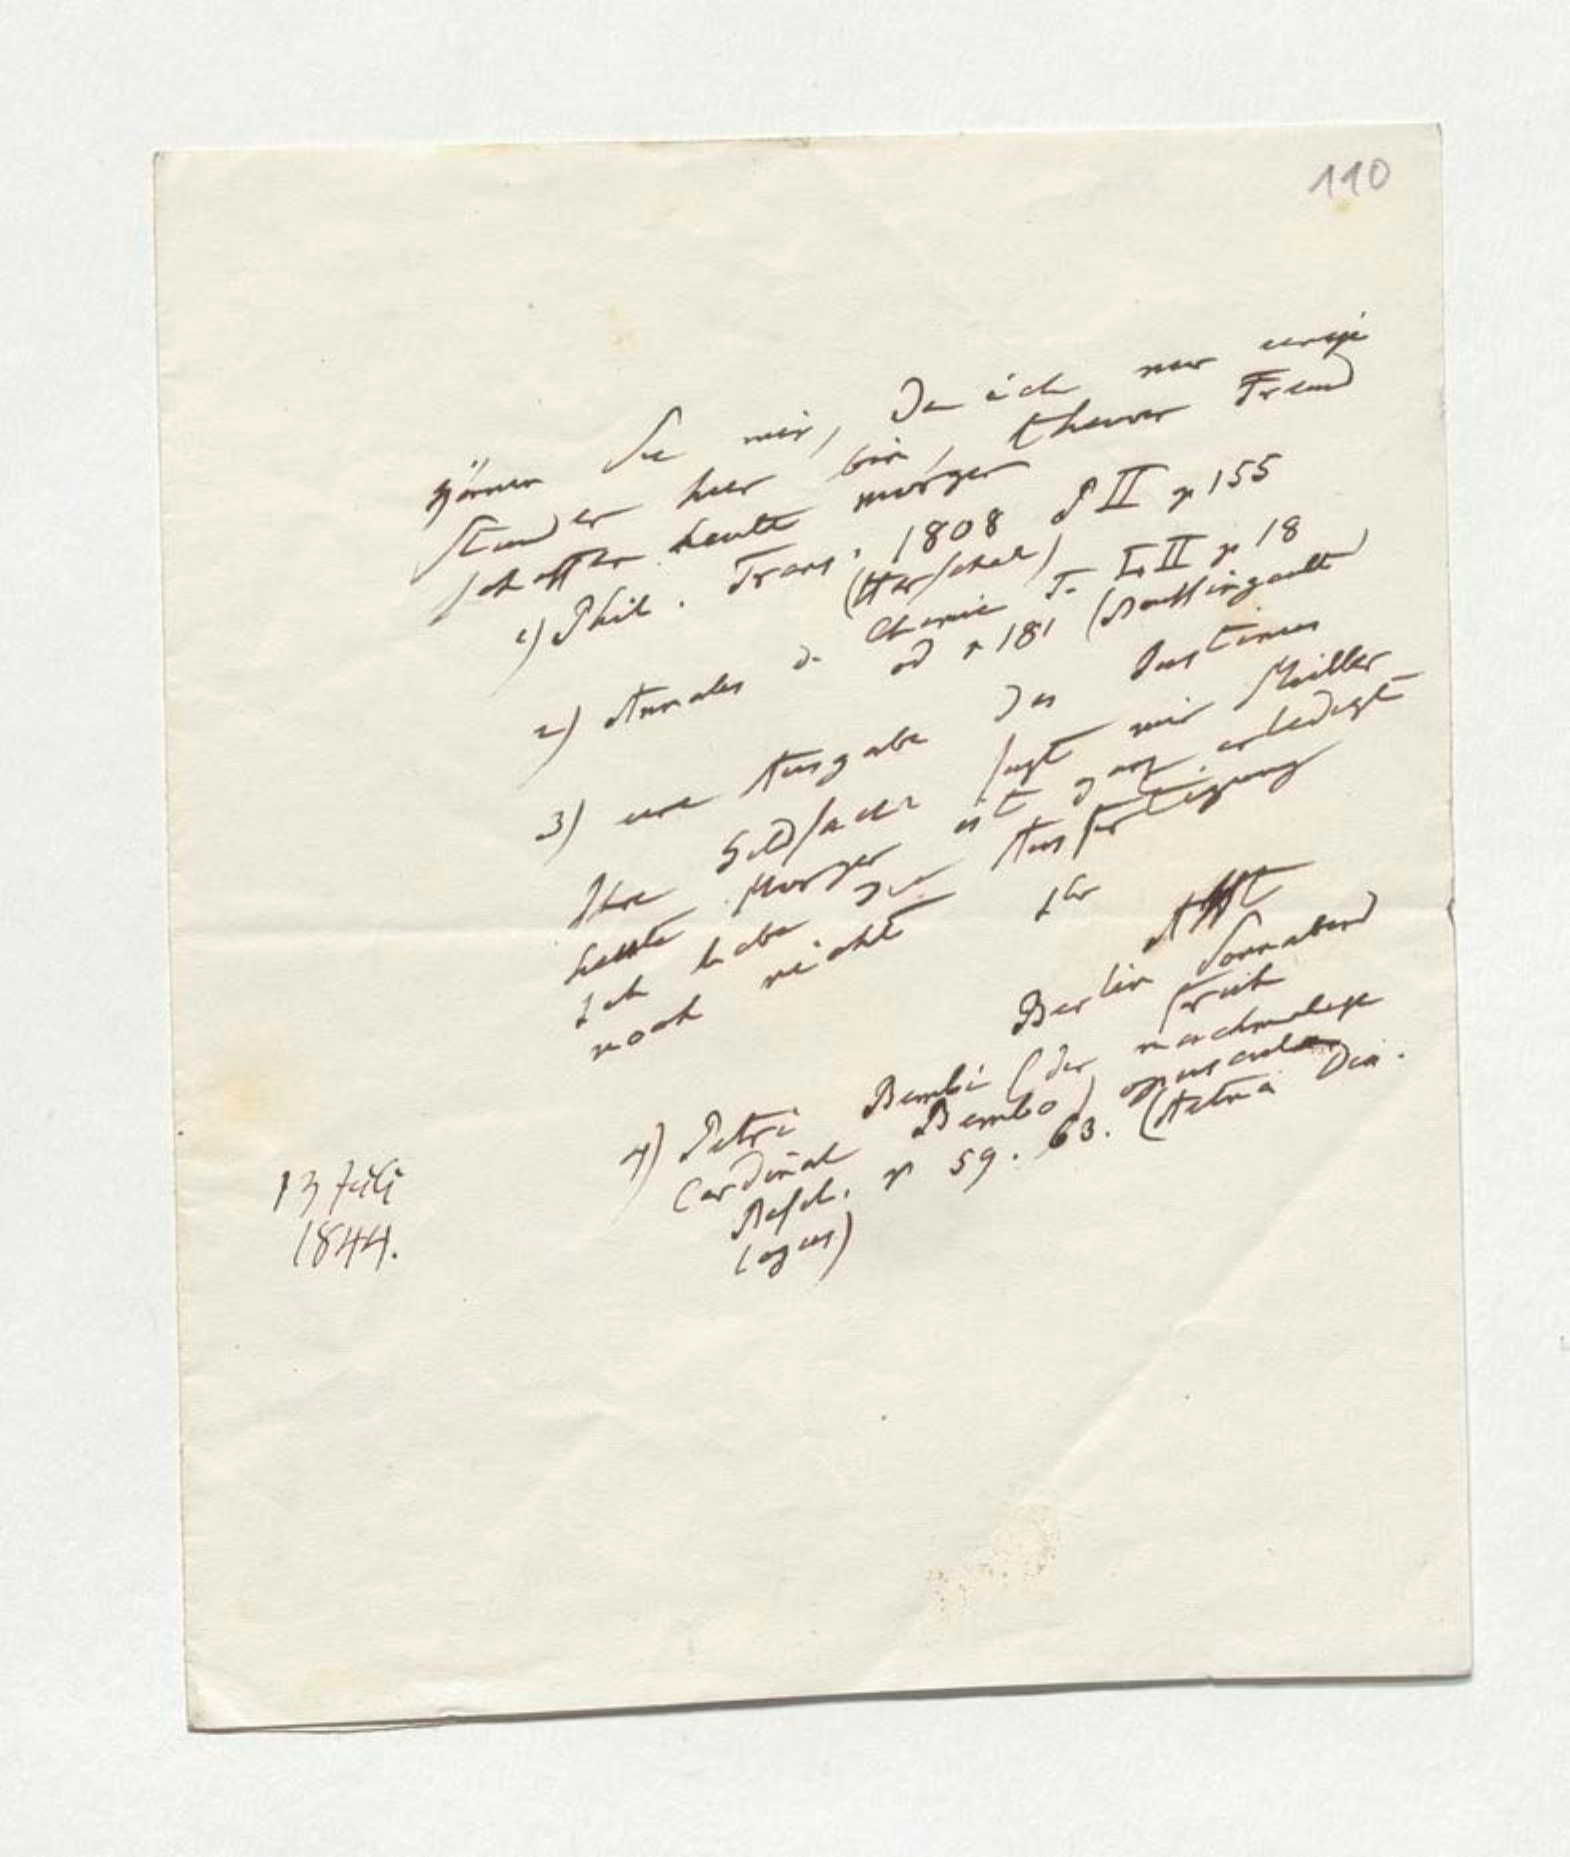 110
Können Sie mir, da ich nur einige
Stunden hier bin, theurer Freund
schaffen heute morgen
1) Phil. Trans. 1808 P II p 155
(Herschel)
2) Annales de Chimie T. LII p 18
od p 181 (Boussingault)
3) eine Ausgabe des Justinus
Ihre Geldsache sagt mir Müller
heute Morgen ist ganz erledigt
Ich habe zur Ausfertigung
noch nichts
Ihr
AHt
Berlin Sonnabend
früh
4) Petri Bembi (der nachmalige
Cardinal Bembo) opuscula
Basel. p 59. 63. (Aetna Dia-
logus)
13 Juli
1844.